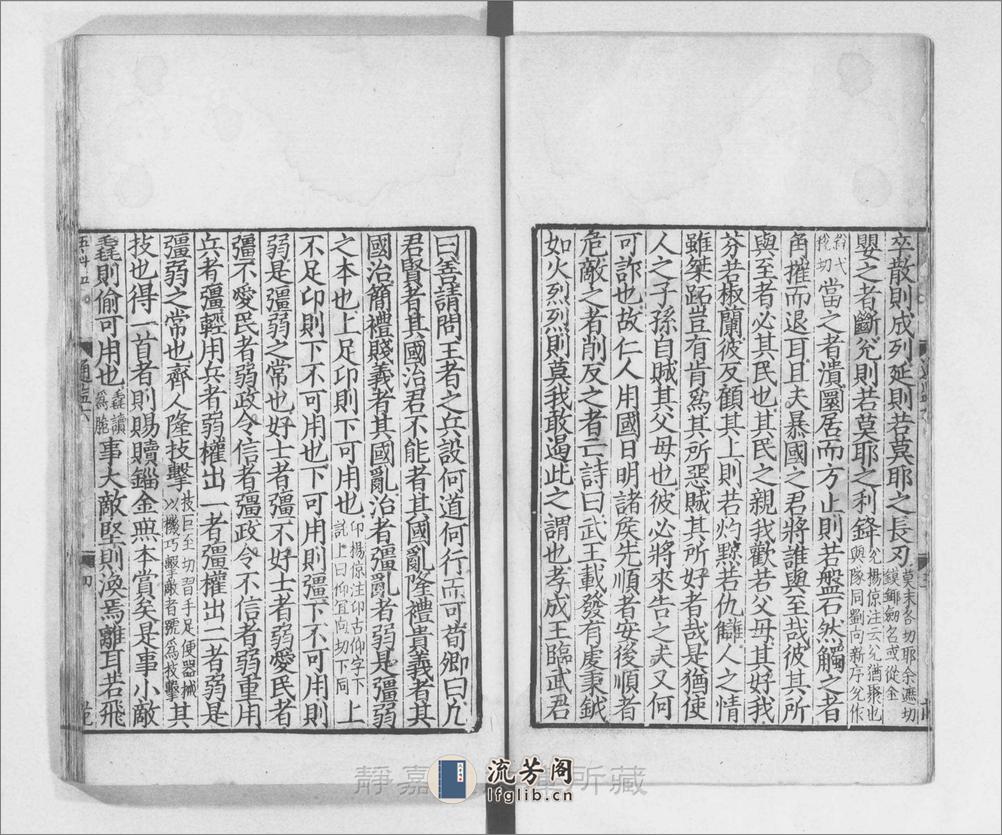 卒散則成列延則若莫耶之長刃莫末各切耶余遮切鏌鎁劒名或從金
嬰之者斷兊則若莫耶之利鋒兊楊倞注云兊猶聚也與隊同劉向新序兊作
銳弋稅切當之者潰圜居而方止則若盤石然觸之者
角摧而退耳且夫暴國之君將誰與至哉彼其所
與至者必其民也其民之親我歡若父母其好我
芬若椒蘭彼反顧其上則若灼黥若仇讎人之情
雖桀跖豈有肯爲其所惡賊其所好者哉是猶使
人之子孫自賊其父母也彼必將來告之夫又何
可詐也故仁人用國日明諸矦先順者安後順者
危敵之者削反之者亡詩曰武王載發有虔秉鉞
如火烈烈則莫我敢遏此之謂也孝成王臨武君
曰善請問王者之兵設何道何行而可荀卿曰凢
君賢者其國治君不能者其國亂隆禮貴義者其
國治簡禮賤義者其國亂治者彊亂者弱是彊弱
之本也上足卬則下可用也卬楊倞注卬古仰字下託上曰仰宜向切下同上
不足卬則下不可用也下可用則彊下不可用則
弱是彊弱之常也好士者彊不好士者弱愛民者
彊不愛民者弱政令信者彊政令不信者弱重用
兵者彊輕用兵者弱權出一者彊權出二者弱是
彊弱之常也齊人隆技擊技巨至切習手足便器械以機巧擊敵者號爲技擊其
技也得一首者則賜贖錙金無本賞矣是事小敵
毳則偷可用也毳讀爲脆事大敵堅則渙焉離耳若飛
通監六
四
靜嘉 所藏
流芳阁
lfglib.cn